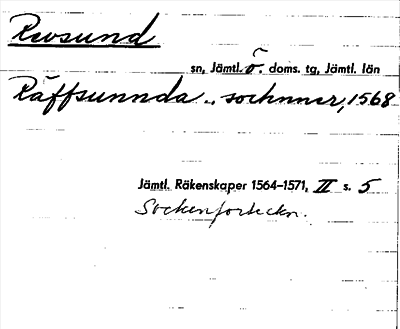 Revsund
sn, Jämtl. ö. doms. tg, Jämtl. län
Räffsunnda .. sochnner, 1568
Jämtl. Räkenskaper 1564–1571, II s. 5
Sockenförteckn.